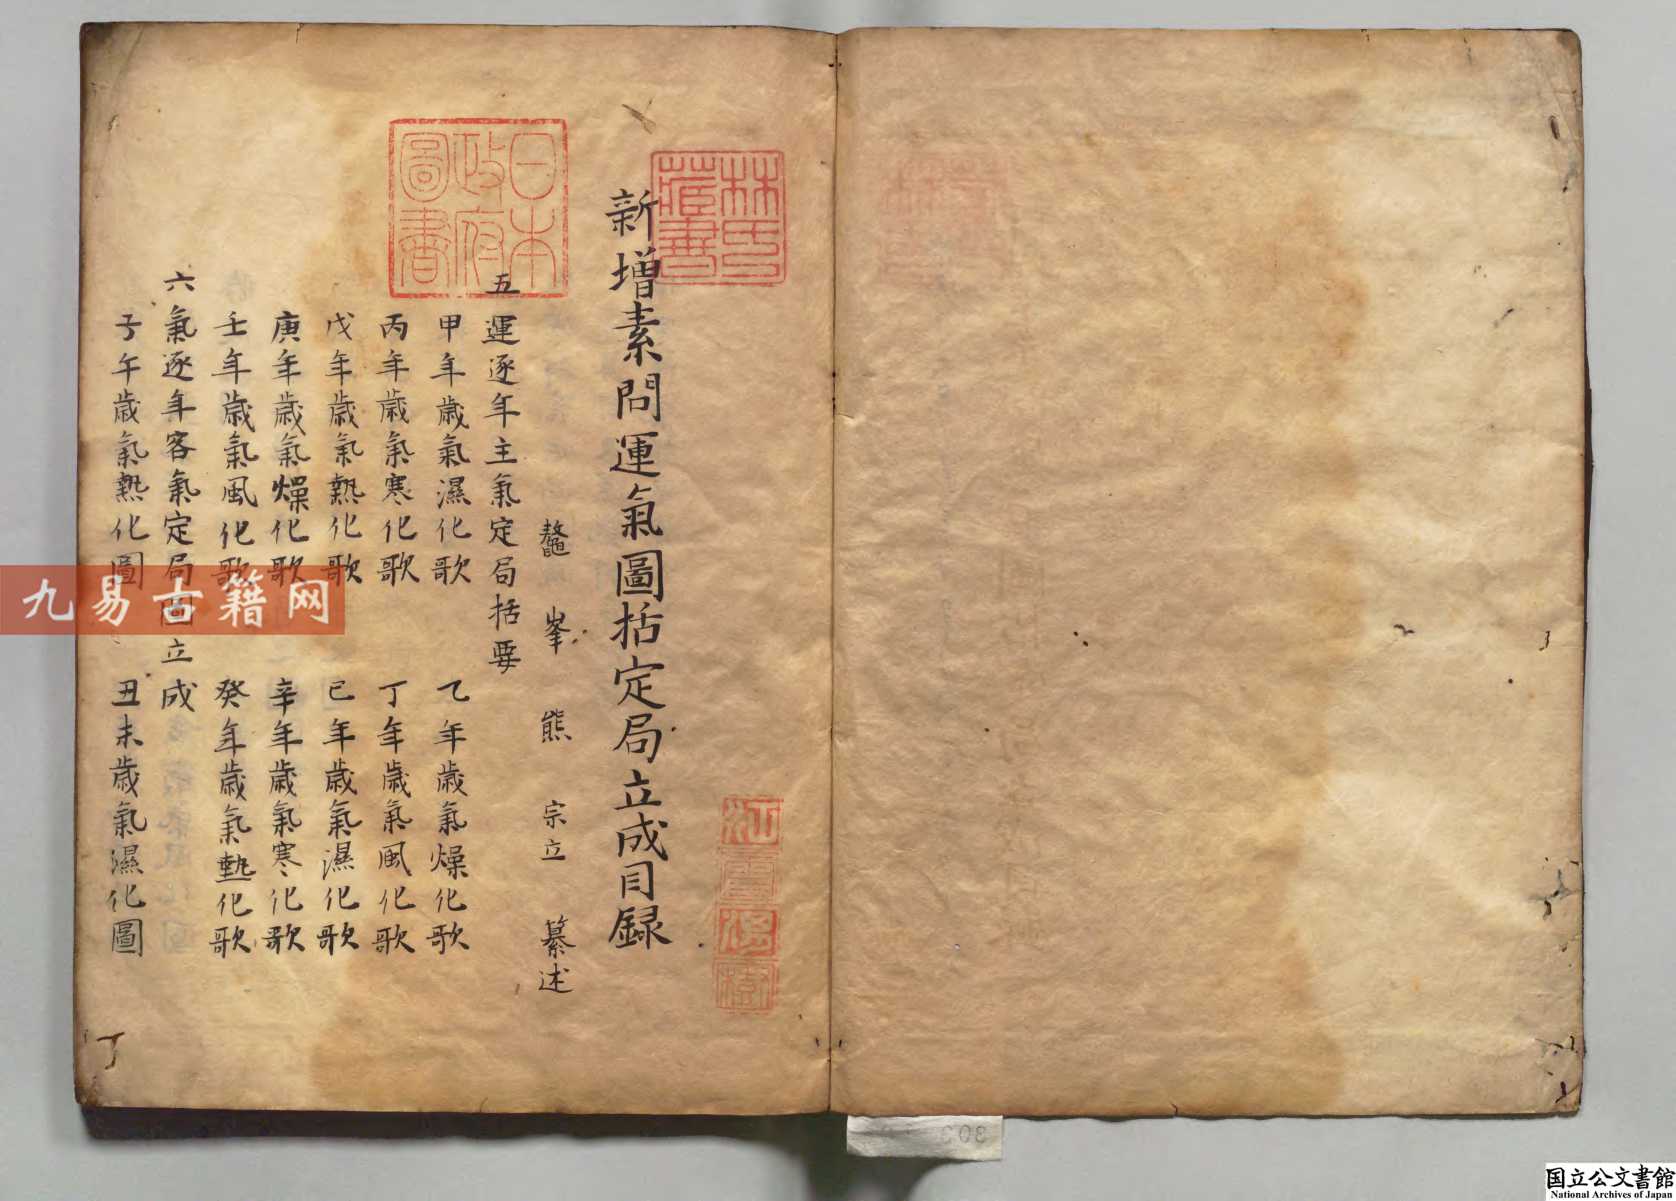 新增素問運氣圖括定局立成目録
鼇峯熊宗立纂述
五運逐年主氣定局括要
甲年歲氣濕化歌 乙年歲氣燥化歌
丙年歲氣寒化歌 丁年歲氣風化歌
戊年歲氣熱化歌 己年歲氣濕化歌
庚年歲氣燥化歌 辛年歲氣寒化歌
壬年歲氣風化歌 癸年歲氣熱化歌
六氣逐年客氣定局圖立成
子午歲氣熱化圖 丑未歲氣濕化圖
林氏藏書
日本政府圖書
江雲渭樹
丁
九易古籍网
303
国立公文書館
National Archives of Japan